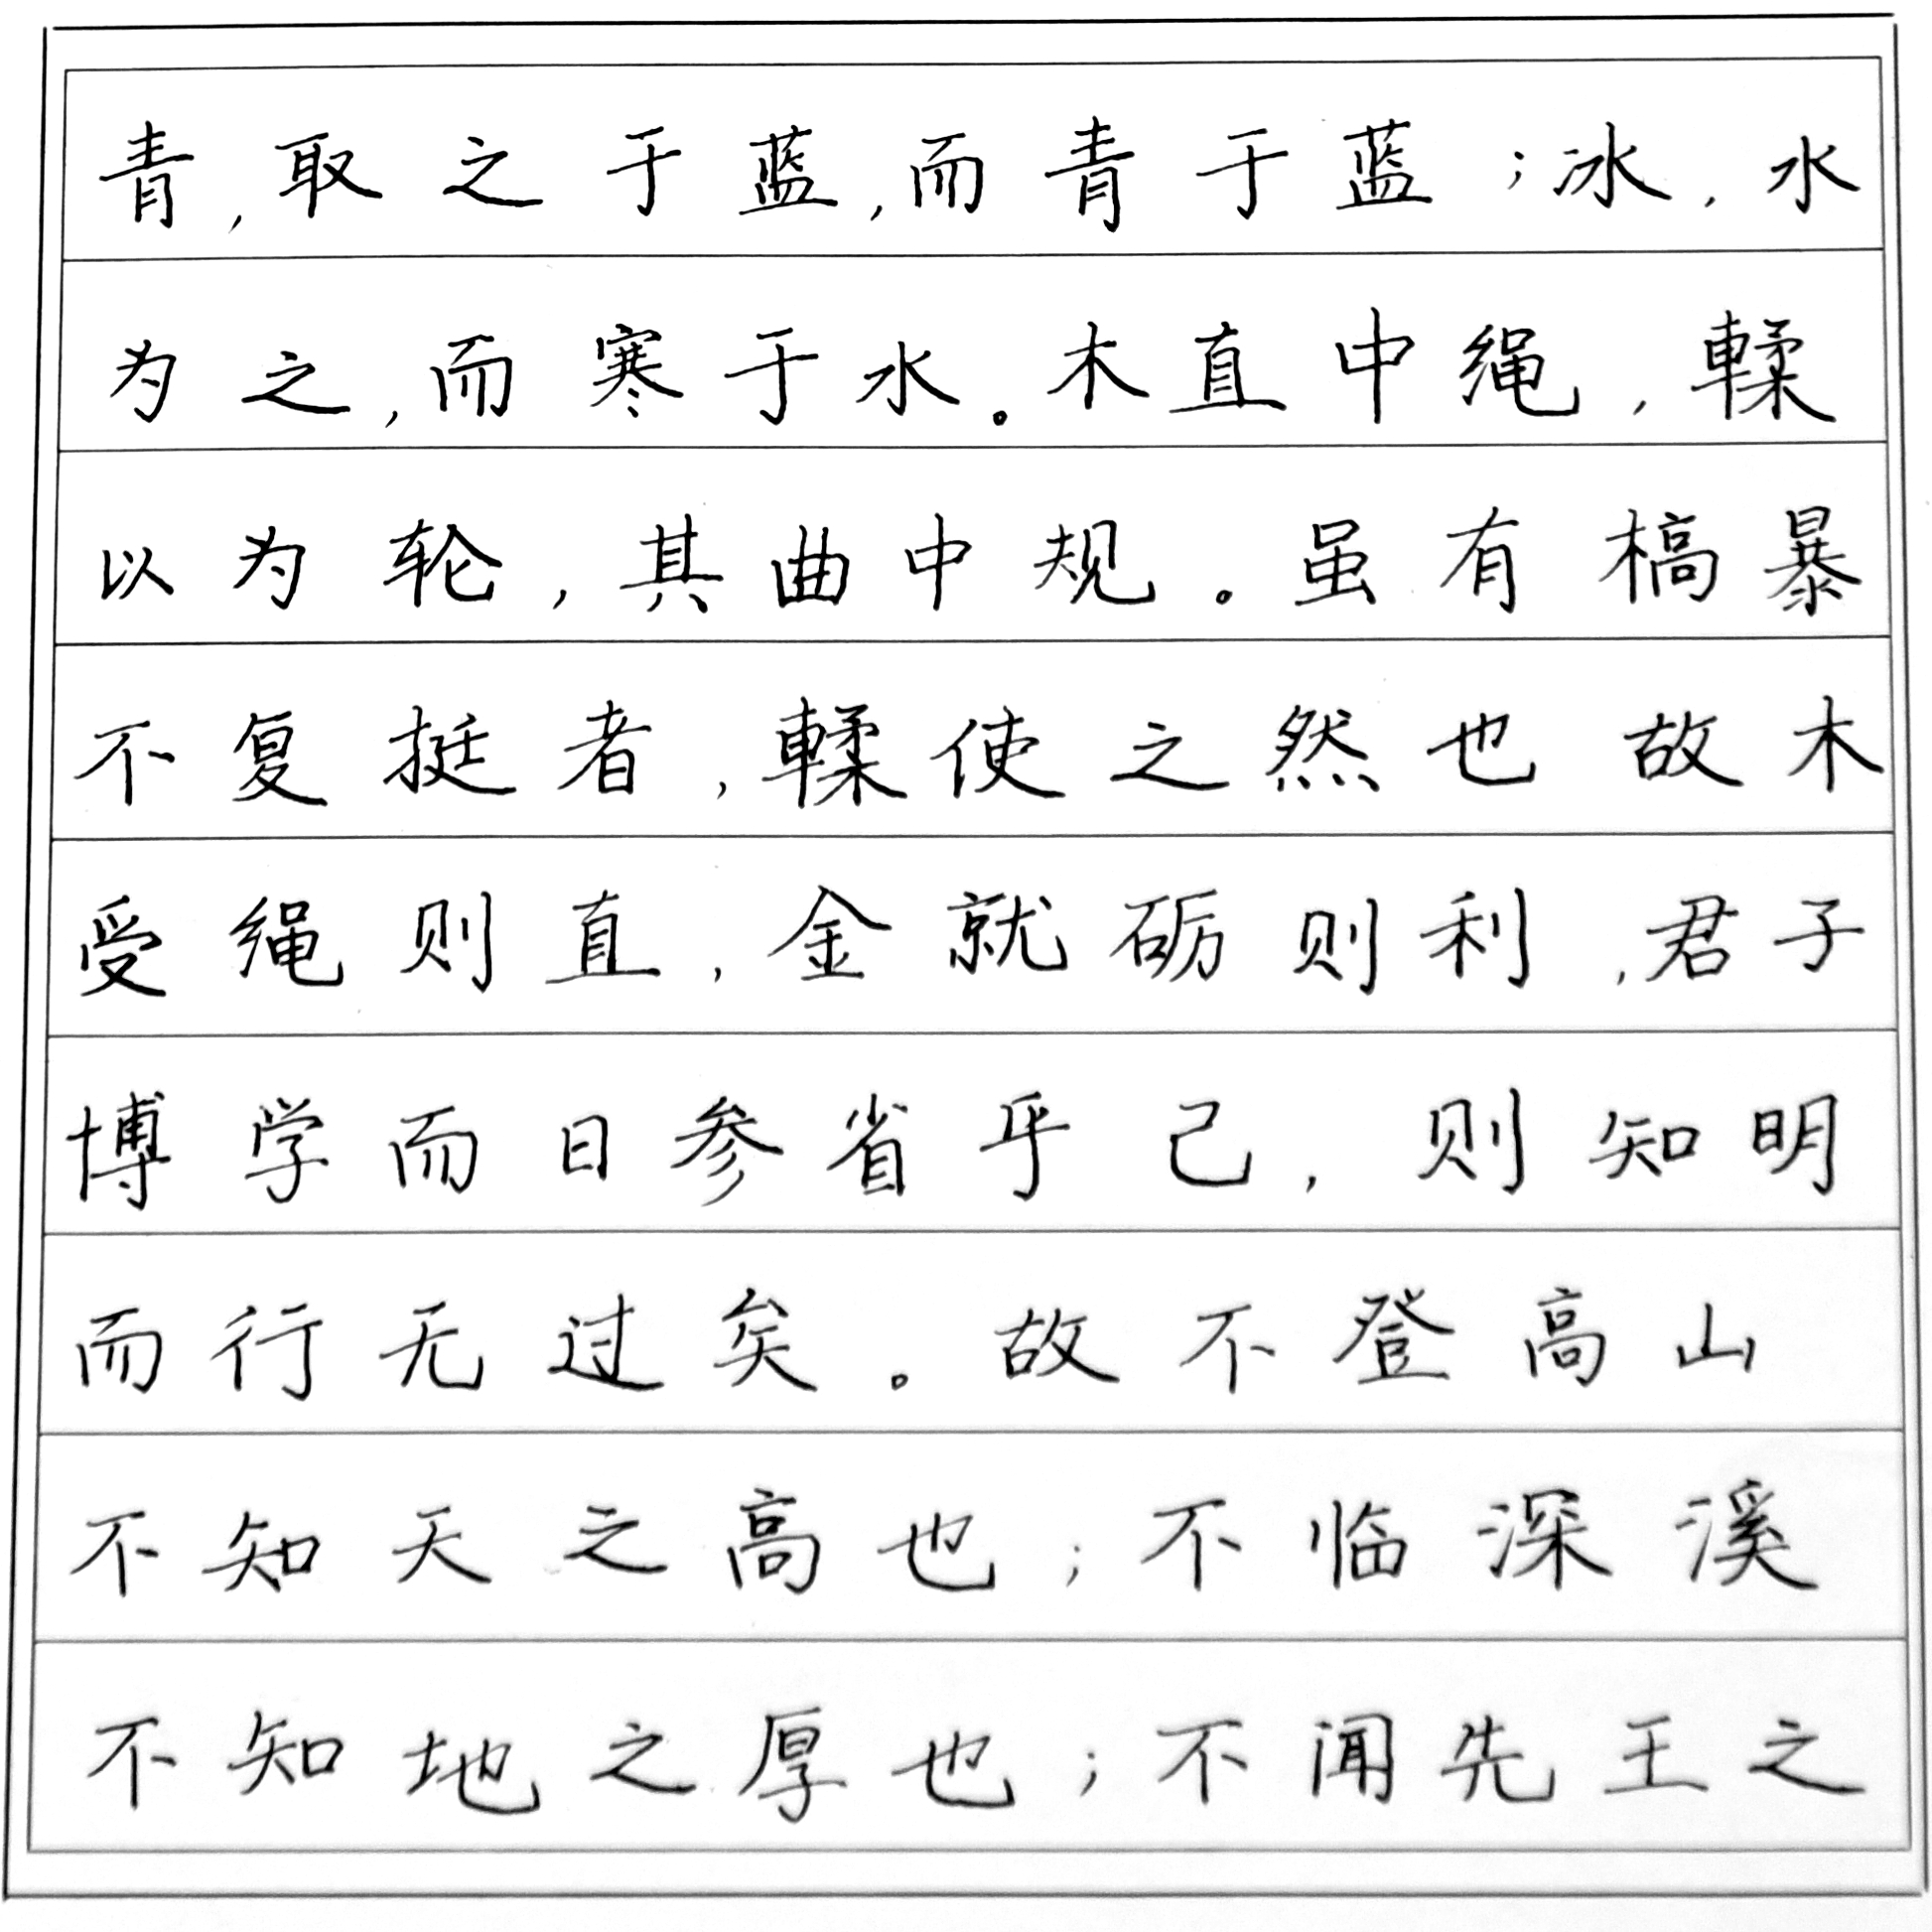 青,取之于蓝,而青于蓝;冰,水
为之,而寒于水。木直中绳,輮
以为轮,其曲中规。虽有槁暴
不复挺者,輮使之然也 故木
受绳则直,金就砺则利,君子
博学而日参省乎己,则知明
而行无过矣。故不登高山
不知天之高也;不临深溪
不知地之厚也;不闻先王之